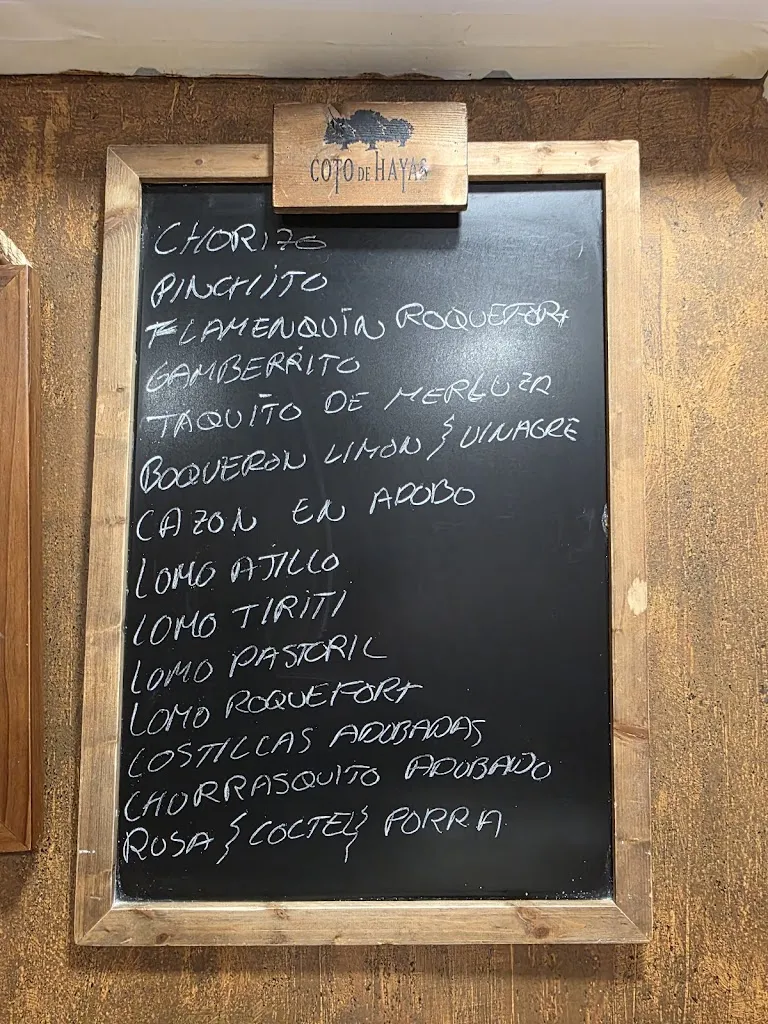 COTO DE HAYAS
CHORIZO
PINCHITO
FLAMENQUÍN ROQUEFORT
GAMBERRITO
TAQUITO DE MERLUZA
BOQUERON LIMON } VINAGRE
CAZON EN ADOBO
LOMO AJILLO
LOMO TIRITI
LOMO PASTORIL
LOMO ROQUEFORT
COSTILLAS ADOBADAS
CHORRASQUITO ADOBADO
RUSA } COCTEL } PORRA